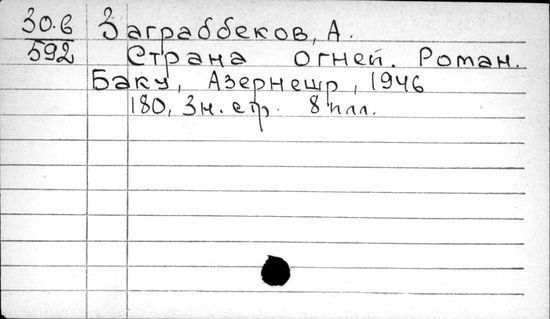 30.6 Заграббеков, А.
592 Страна огней. Роман.
Баку, Азернешр, 1946
180, 3 н. стр. 8 илл.